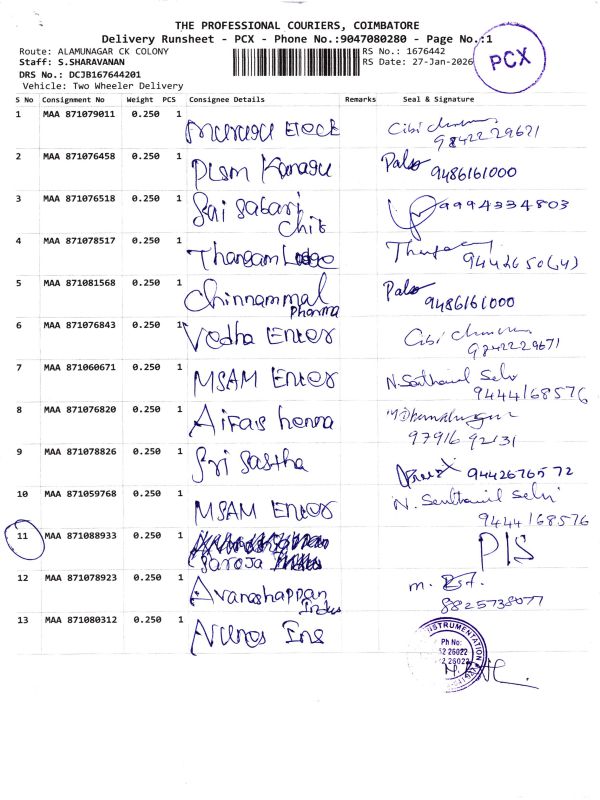 THE PROFESSIONAL COURIERS, COIMBATORE
Delivery Runsheet - PCX - Phone No.:9047080280 - Page No.:1
Route: ALAMUNAGAR CK COLONY
RS No.: 1676442
PCX
Staff: S.SHARAVANAN
RS Date: 27-Jan-2026
DRS No.: DCJB167644201
Vehicle: Two Wheeler Delivery
S No Consignment No Weight PCS Consignee Details Remarks Seal & Signature
1 MAA 871079011 0.250 1 Murugu Elock Cibi
9842229671
2 MAA 871076458 0.250 1 PLSM Kanagu Palso 9486161000
3 MAA 871076518 0.250 1 Sai Sabari 9994334803
Chit
4 MAA 871078517 0.250 1 Thangam Lodge
5 MAA 871081568 0.250 1 Chinnammal Palso 9486161000
Pharma
6 MAA 871076843 0.250 1 Vedha Enter Cibi
9842229671
7 MAA 871060671 0.250 1 MSAM Enter N. Senthamil Selvi
9444168576
8 MAA 871076820 0.250 1 Aifas henna
9791692131
9 MAA 871078826 0.250 1 Sri Sastha 9442676572
10 MAA 871059768 0.250 1 MSAM Enter N. Senthamil Selvi
9444168576
11 MAA 871088933 0.250 1 Saroja P/S
12 MAA 871078923 0.250 1 Avanashappan m.
Indus 8825738077
13 MAA 871080312 0.250 1 Ins
INSTRUMENTATION
Ph No:
52 26022